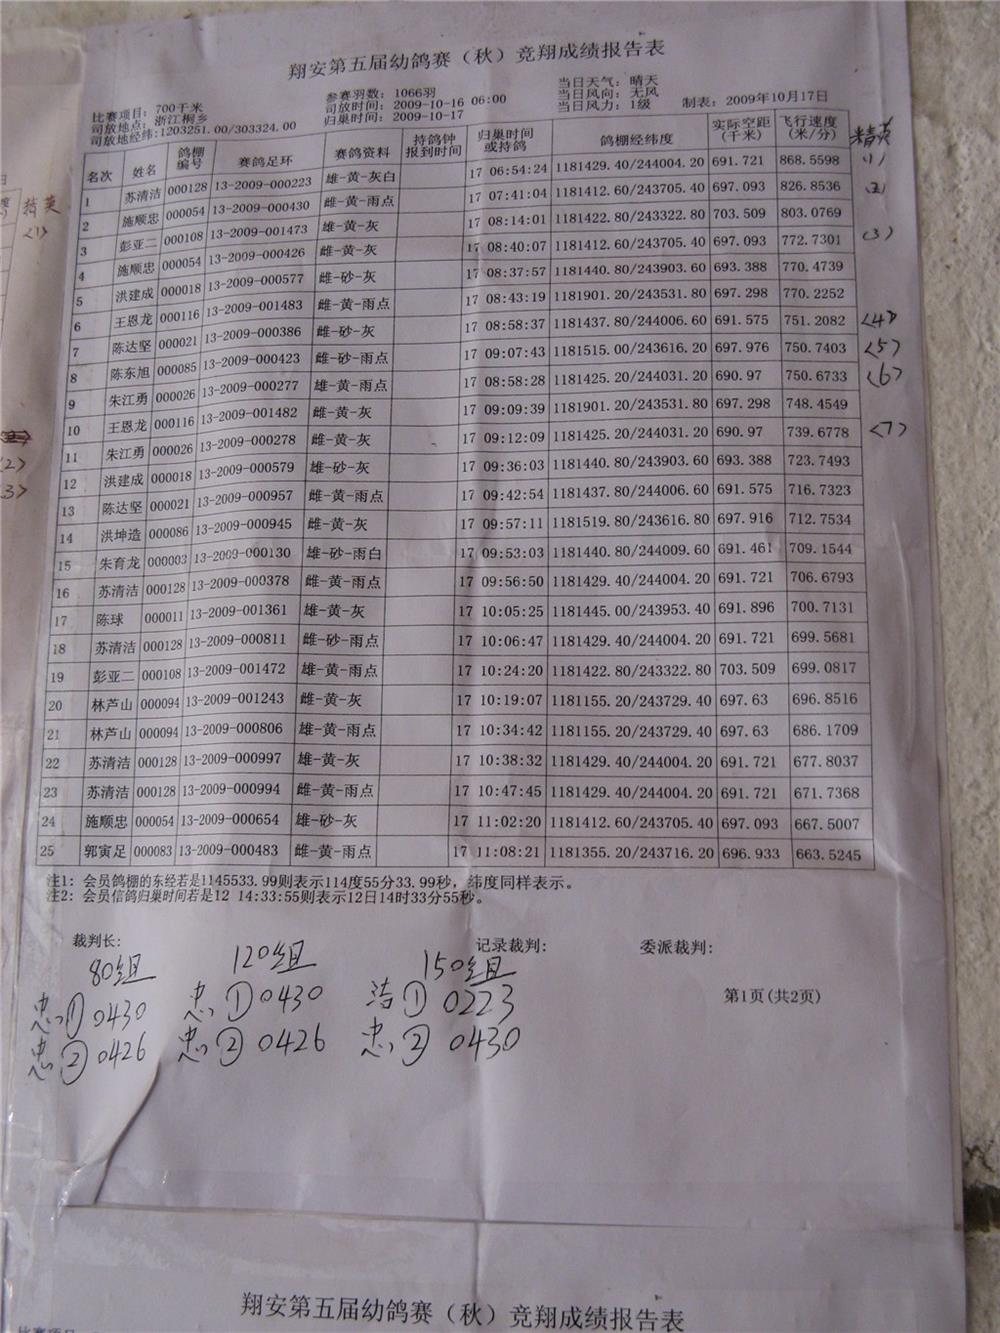 翔安第五届幼鸽赛（秋）竞翔成绩报告表
比赛项目：700千米 参赛羽数：1066羽 当日天气：晴天
司放地点：浙江桐乡 司放时间：2009-10-16 06:00 当日风向：无风
司放地经纬:1203251.00/303324.00 归巢时间：2009-10-17 当日风力：1级 制表：2009年10月17日
名次 姓名 鸽棚编号 赛鸽足环 赛鸽资料 持鸽钟报到时间 归巢时间或持鸽 鸽棚经纬度 实际空距(千米) 飞行速度(米/分) 精英
1 苏清洁 000128 13-2009-000223 雄-黄-灰白 17 06:54:24 1181429.40/244004.20 691.721 868.5598 (1)
2 施顺忠 000054 13-2009-000430 雌-黄-雨点 17 07:41:04 1181412.60/243705.40 697.093 826.8536 (2)
3 彭亚二 000108 13-2009-001473 雄-黄-灰 17 08:14:01 1181422.80/243322.80 703.509 803.0769
4 施顺忠 000054 13-2009-000426 雌-黄-灰 17 08:40:07 1181412.60/243705.40 697.093 772.7301 (3)
5 洪建成 000018 13-2009-000577 雌-砂-灰 17 08:37:57 1181440.80/243903.60 693.388 770.4739
6 王恩龙 000116 13-2009-001483 雄-黄-雨点 17 08:43:19 1181901.20/243531.80 697.298 770.2252
7 陈达坚 000021 13-2009-000386 雌-砂-灰 17 08:58:37 1181437.80/244006.60 691.575 751.2082 <4>
8 陈东旭 000085 13-2009-000423 雌-砂-雨点 17 09:07:43 1181515.00/243616.20 697.976 750.7403 <5>
9 朱江勇 000026 13-2009-000277 雄-黄-雨点 17 08:58:28 1181425.20/244031.20 690.97 750.6733 <6>
10 王恩龙 000116 13-2009-001482 雌-黄-灰 17 09:09:39 1181901.20/243531.80 697.298 748.4549
11 朱江勇 000026 13-2009-000278 雌-黄-灰 17 09:12:09 1181425.20/244031.20 690.97 739.6778 <7>
12 洪建成 000018 13-2009-000579 雄-砂-灰 17 09:36:03 1181440.80/243903.60 693.388 723.7493
13 陈达坚 000021 13-2009-000957 雌-黄-雨点 17 09:42:54 1181437.80/244006.60 691.575 716.7323
14 洪坤造 000086 13-2009-000945 雌-黄-灰 17 09:57:11 1181519.80/243616.80 697.916 712.7534
15 朱育龙 000003 13-2009-000130 雄-砂-雨白 17 09:53:03 1181440.80/244009.60 691.461 709.1544
16 苏清洁 000128 13-2009-000378 雌-黄-雨点 17 09:56:50 1181429.40/244004.20 691.721 706.6793
17 陈球 000011 13-2009-001361 雄-黄-灰 17 10:05:25 1181445.00/243953.40 691.896 700.7131
18 苏清洁 000128 13-2009-000811 雌-砂-雨点 17 10:06:47 1181429.40/244004.20 691.721 699.5681
19 彭亚二 000108 13-2009-001472 雄-黄-雨点 17 10:24:20 1181422.80/243322.80 703.509 699.0817
20 林芦山 000094 13-2009-001243 雌-黄-灰 17 10:19:07 1181155.20/243729.40 697.63 696.8516
21 林芦山 000094 13-2009-000806 雌-黄-雨点 17 10:34:42 1181155.20/243729.40 697.63 686.1709
22 苏清洁 000128 13-2009-000997 雄-黄-灰 17 10:38:32 1181429.40/244004.20 691.721 677.8037
23 苏清洁 000128 13-2009-000994 雌-黄-雨点 17 10:47:45 1181429.40/244004.20 691.721 671.7368
24 施顺忠 000054 13-2009-000654 雄-砂-灰 17 11:02:20 1181412.60/243705.40 697.093 667.5007
25 郭寅足 000083 13-2009-000483 雌-黄-雨点 17 11:08:21 1181355.20/243716.20 696.933 663.5245
注1: 会员鸽棚的东经若是1145533.99则表示114度55分33.99秒，纬度同样表示。
注2: 会员信鸽归巢时间若是12 14:33:55则表示12日14时33分55秒。
裁判长: 记录裁判: 委派裁判:
80组 120组 150组
忠 ① 0430 忠 ① 0430 洁 ① 0223
忠 ② 0426 忠 ② 0426 忠 ② 0430
第1页(共2页)
翔安第五届幼鸽赛（秋）竞翔成绩报告表
精英
<1>
<2>
<3>